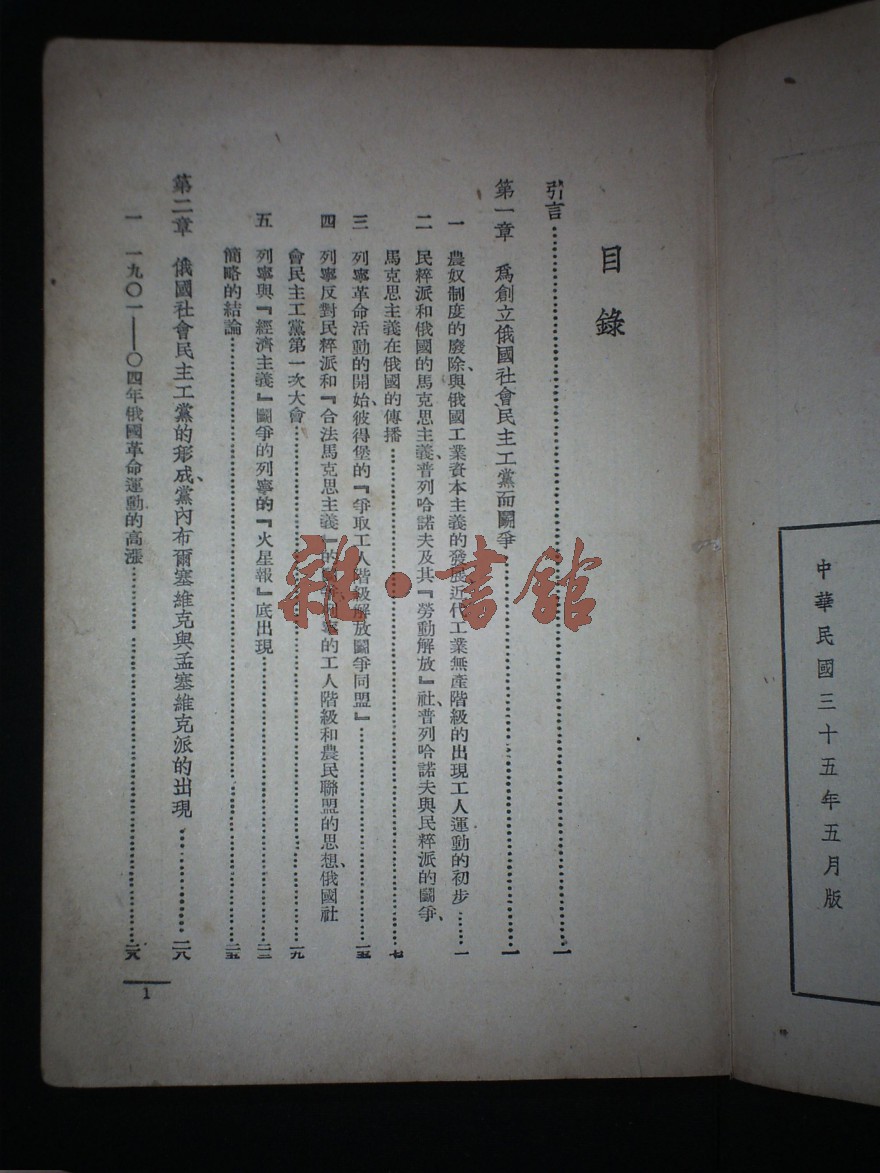 中華民國三十五年五月版
目錄
引言……一
第一章 爲創立俄國社會民主工黨而鬭爭……一
一 農奴制度的廢除、與俄國工業資本主義的發展、近代工業無產階級的出現工人運動的初步……一
二 民粹派和俄國的馬克思主義、普列哈諾夫及其『勞動解放』社、普列哈諾夫與民粹派的鬭爭、
馬克思主義在俄國的傳播……七
三 列寧革命活動的開始、彼得堡的『爭取工人階級解放鬭爭同盟』……一五
四 列寧反對民粹派和『合法馬克思主義』的的工人階級和農民聯盟的思想、俄國社
會民主工黨第一次大會……一九
五 列寧與『經濟主義』鬭爭的列寧的『火星報』底出現……二二
簡略的結論……二五
第二章 俄國社會民主工黨的形成、黨內布爾塞維克與孟塞維克派的出現……二八
一 一九〇一——〇四年俄國革命運動的高漲……二八
1
雜·書館